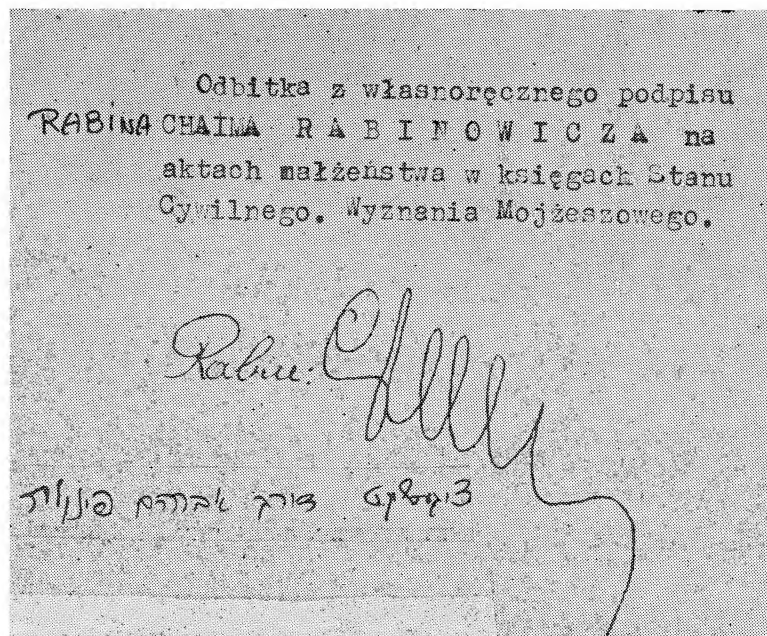 Odbitka z własnoręcznego podpisu
RABINA CHAIMA RABINOWICZA na
aktach małżeństwa w księgach Stanu
Cywilnego. Wyznania Mojżeszowego.
Rabin:
דורך אברהם